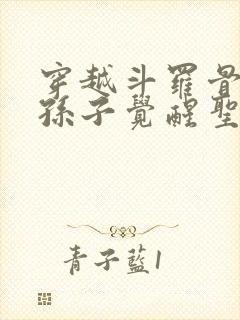 穿越斗羅
孫子覺醒聖
青子藍1